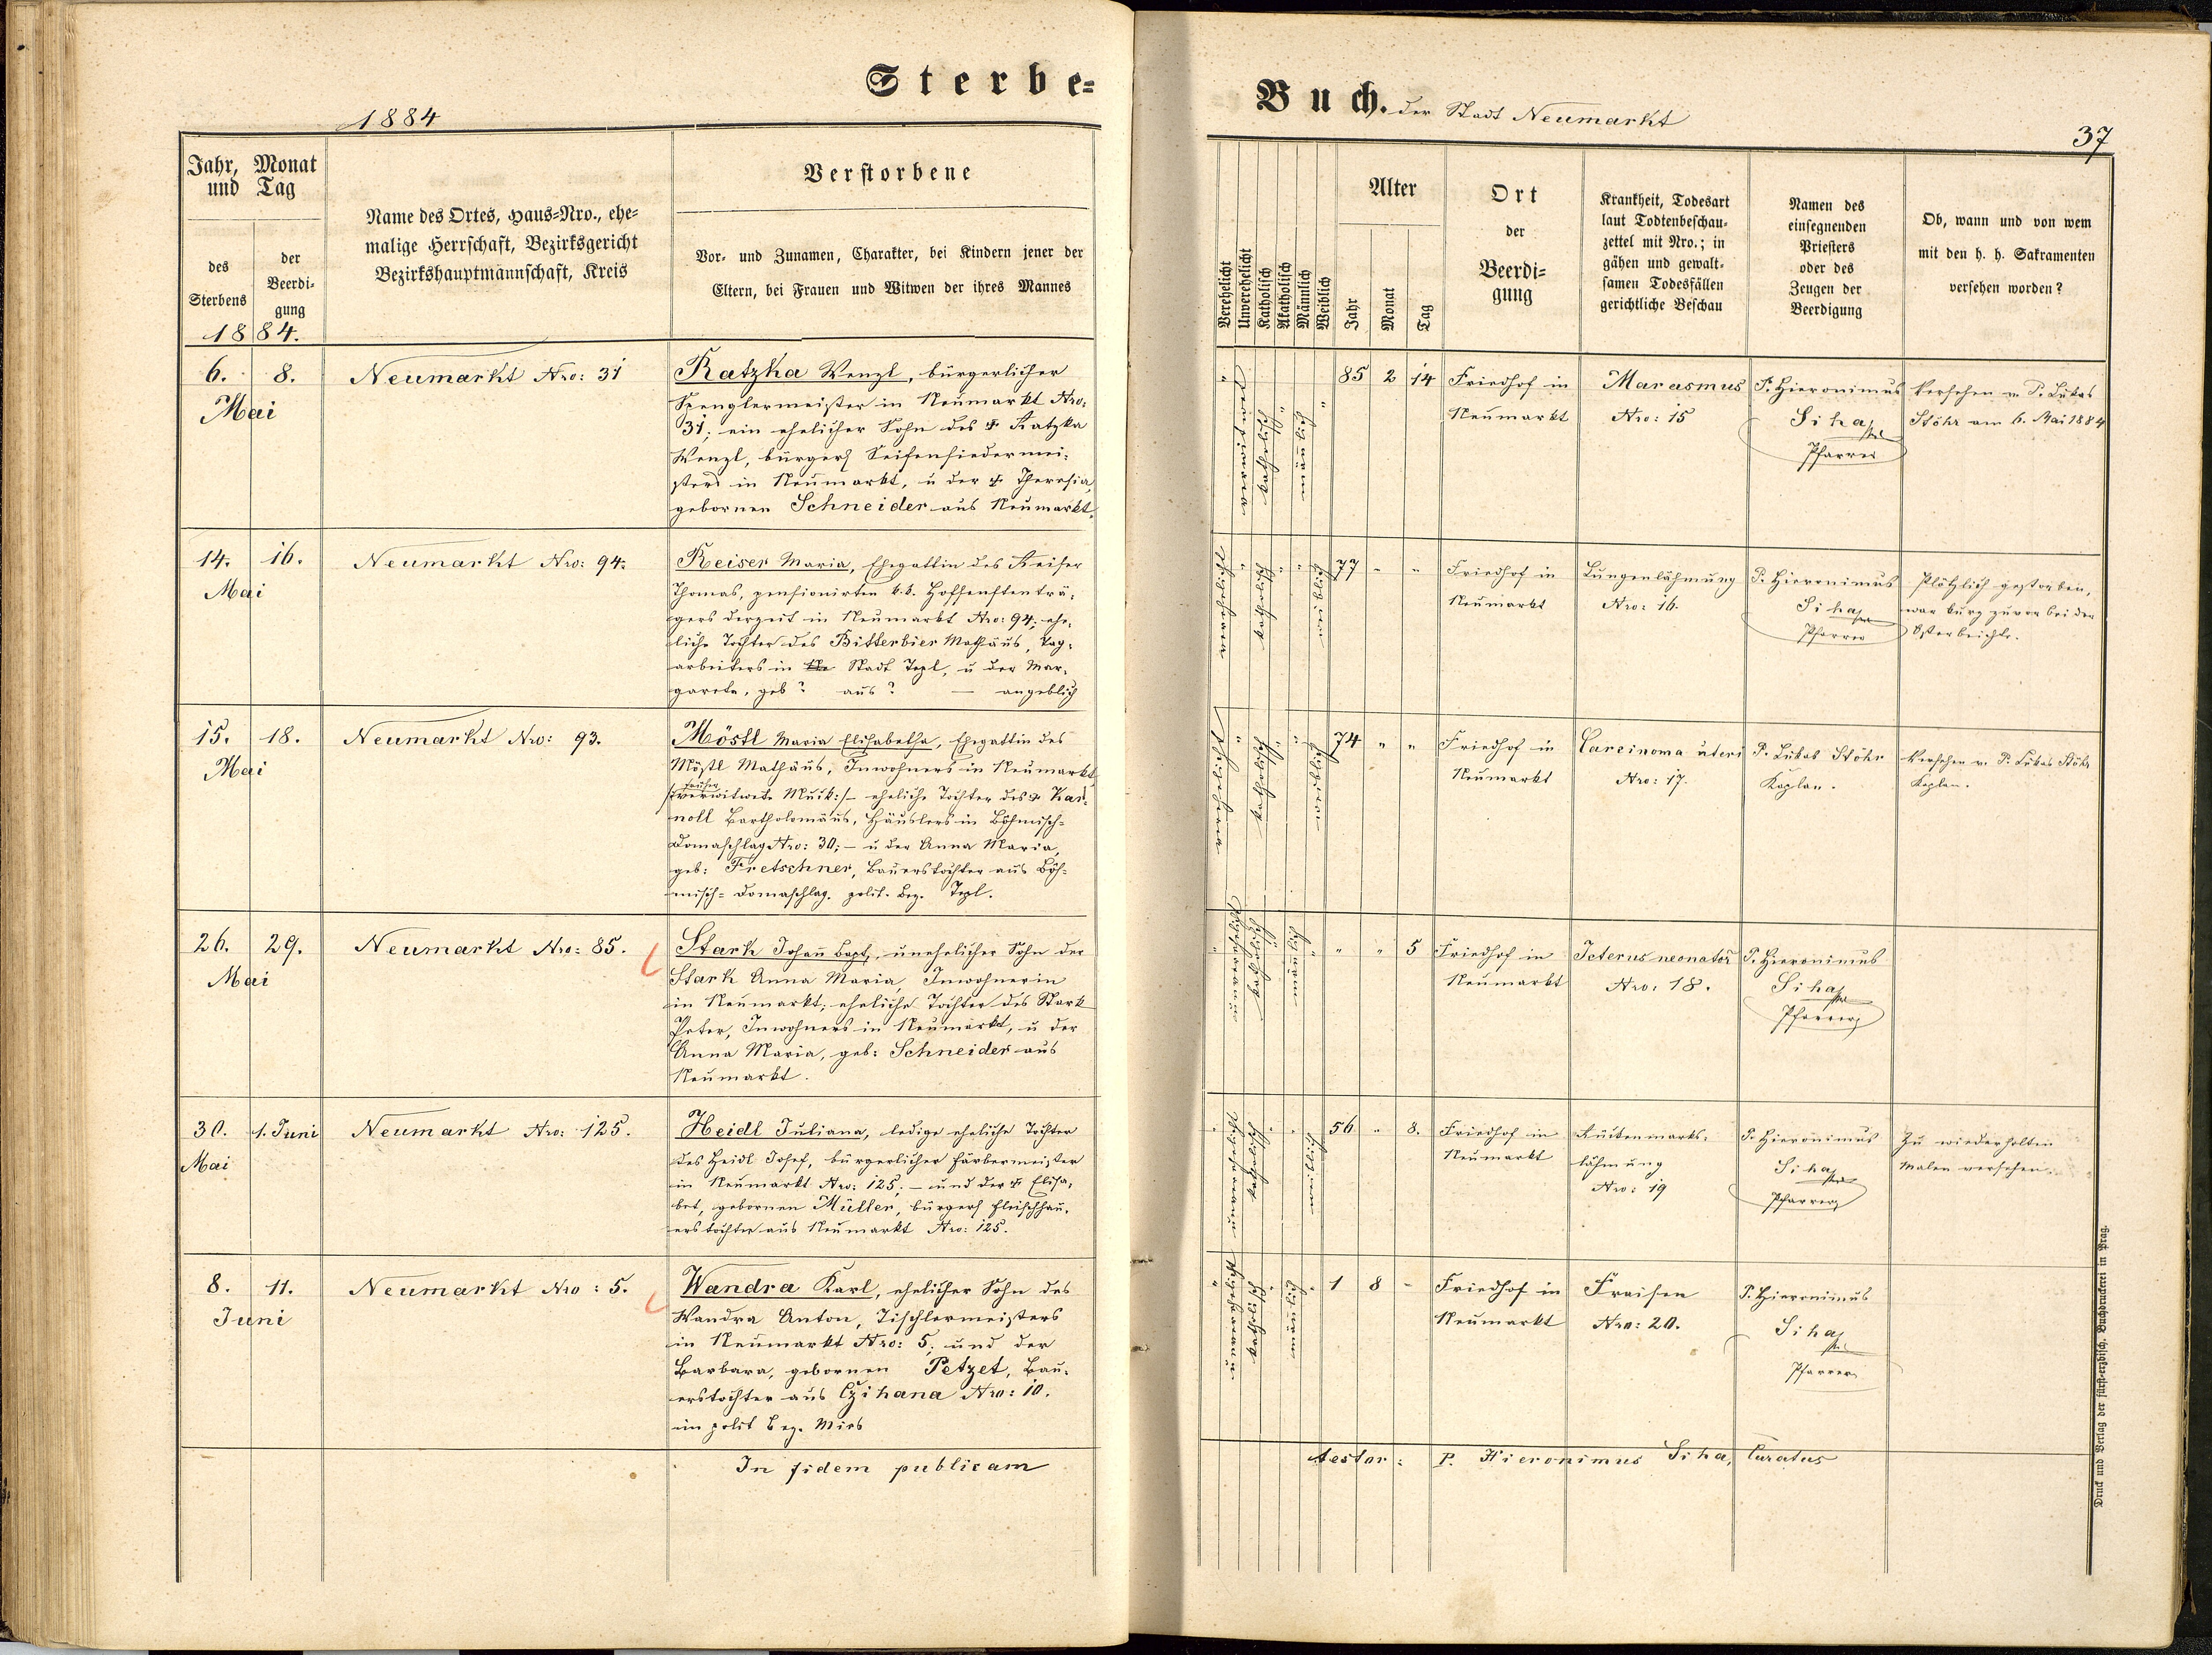 Sterbe=
1884
Jahr, Monat
und Tag
des
Sterbens
der
Beerdi=
gung
1884.
Name des Ortes, Haus=Nro., ehe=
malige Herrschaft, Bezirksgericht
Bezirkshauptmannschaft, Kreis
Verstorbene
Vor= und Zunamen, Charakter, bei Kindern jener der
Eltern, bei Frauen und Witwen der ihres Mannes
6. 8.
Mai
Neumarkt Nro: 31
Ratzka Wenzl, bürgerlicher
Spenglermeister in Neumarkt Nro:
31; ein ehelicher Sohn des † Ratzka
Wenzl, bürgerl Seifensiedermei=
sters in Neumarkt, u der † Theresia,
gebornen Schneider aus Neumarkt.
14. 16.
Mai
Neumarkt Nro: 94.
Reiser Maria, Ehegattin des Reiser
Thomas, pensionirten k.k. Hofsenftenträ=
gers derzeit in Neumarkt Nro: 94; ehe=
liche Tochter des Bitterbier Mathäus, Tag=
arbeiters in Stadt Tepl, u der Mar=
gareta, geb? aus? — angeblich
15. 18.
Mai
Neumarkt Nro: 93.
Möstl Maria Elisabetha, Ehegattin des
Möstl Mathäus, Inwohners in Neumarkt
früher
verwitwete Muck:/– eheliche Tochter des † Kar=
noll Bartholomäus, Häuslers in Böhmisch=
Domaschlag Nro: 30; – u der Anna Maria,
geb: Fretschner, Bauerstochter aus Böh=
misch= Domaschlag. polit. Bez. Tepl.
26. 29.
Mai
Neumarkt Nro: 85.
Stark Johañ Bapt, unehelicher Sohn der
Stark Anna Maria, Inwohnerin
in Neumarkt; eheliche Tochter des Stark
Peter, Inwohners in Neumarkt, u der
Anna Maria, geb: Schneider aus
Neumarkt.
30. 1. Juni
Mai
Neumarkt Nro: 125.
Heidl Juliana, ledige eheliche Tochter
des Heidl Josef, bürgerlicher Färbermeister
in Neumarkt Nro: 125; – und der † Elisa=
bet, gebornen Müller, bürgerl Fleischhau=
erstochter aus Neumarkt Nro: 125.
8. 11.
Juni
Neumarkt Nro: 5.
Wandra Karl, ehelicher Sohn des
Wandra Anton, Tischlermeisters
in Neumarkt Nro: 5; und der
Barbara, gebornen Petzet, Bau=
erstochter aus Czihana Nro: 10.
im polit Bez. Mies
In fidem publicam
Buch. der Stadt Neumarkt
37
Verehelicht
Unverehelicht
Katholisch
Akatholisch
Männlich
Weiblich
Alter
Jahr
Monat
Tag
Ort
der
Beerdi=
gung
Krankheit, Todesart
laut Todtenbeschau=
zettel mit Nro.; in
gähen und gewalt=
samen Todesfällen
gerichtliche Beschau
Namen des
einsegnenden
Priesters
oder des
Zeugen der
Beerdigung
Ob, wann und von wem
mit den h. h. Sakramenten
versehen worden?
katholisch
männlich
85 2 14
Friedhof in
Neumarkt
Marasmus
Nro: 15
P. Hieronimus
Siha
Pfarrer
Versehen v. P. Lukas
Stöhr am 6. Mai 1884
katholisch
77 " "
Friedhof in
Neumarkt
Lungenlähmung
Nro: 16.
P. Hieronimus
Siha
Pfarrer
Plötzlich gestorben,
war kurz zuvor bei der
Osterbeichte.
katholisch
74 " "
Friedhof in
Neumarkt
Carcinoma uteri
Nro: 17.
P. Lukas Stöhr
Kaplan.
Versehen v. P. Lukas Stöhr
Kaplan.
katholisch
männlich
" " 5
Friedhof in
Neumarkt
Icterus neonator
Nro: 18.
P. Hieronimus
Siha
Pfarrer
katholisch
56 " 8.
Friedhof in
Neumarkt
Rückenmarks=
lähmung
Nro: 19
P. Hieronimus
Siha
Pfarrer
Zu wiederholten
Malen versehen.
katholisch
männlich
1 8 –
Friedhof in
Neumarkt
Fraisen
Nro: 20.
P. Hieronimus
Siha
Pfarrer
testor: P. Hieronimus Siha, Curatus
Druck und Verlag der fürst=erzbisch. Buchdruckerei in Prag.